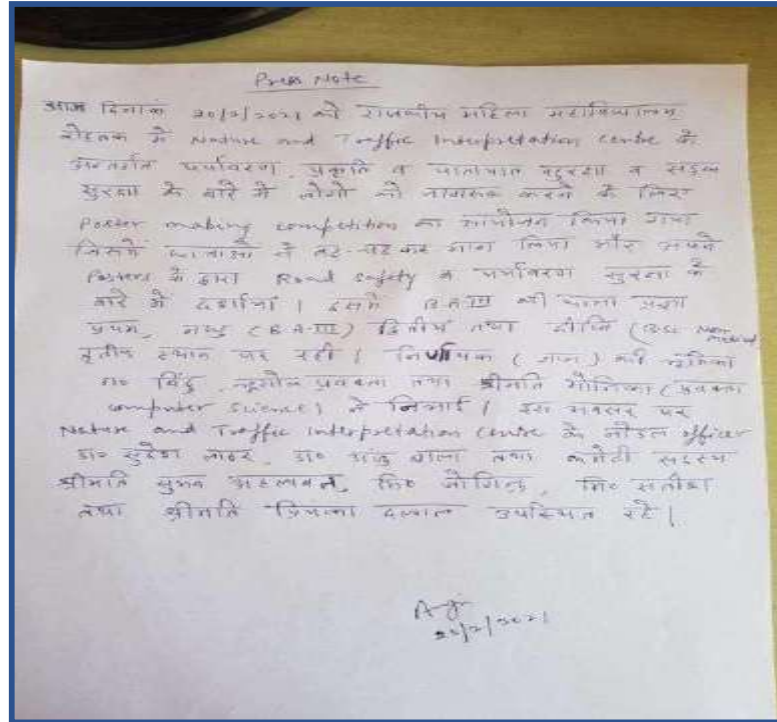 Press Note
आज दिनांक 20/2/2021 को राजकीय महिला महाविद्यालय
रोहतक में Nature and Traffic Interpretation Centre के
अन्तर्गत पर्यावरण, प्रकृति व यातायात सुरक्षा व सड़क
सुरक्षा के बारे में लोगो को जागरूक करने के लिए
Poster making competition का आयोजन किया गया
जिसमें छात्राओं ने बढ़-चढ़ कर भाग लिया और अपने
Posters के द्वारा Road Safety व पर्यावरण सुरक्षा के
बारे में दर्शाया। इसमें B.A III की छात्रा
प्रथम, मधु (B.A-III) द्वितीय तथा दीप्ति (BSc Non Medical)
तृतीय स्थान पर रही। निर्णायक (जज) की भूमिका
डा० बिंदु, भूगोल प्रवक्ता तथा श्रीमति मोनिका (प्रवक्ता
computer science) ने निभाई। इस अवसर पर
Nature and Traffic Interpretation Centre के नोडल officer
डा० सुरेश, डा० अंजु बाला तथा कमेटी सदस्य
श्रीमति सुमन अहलावत, मि० जोगिन्द्र, मि० सतीश
तथा श्रीमति प्रियंका दलाल उपस्थित रहे।
20/2/2021